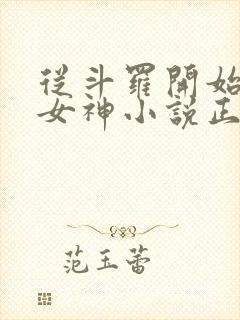 從斗羅開始
女神小說正
范玉蕾